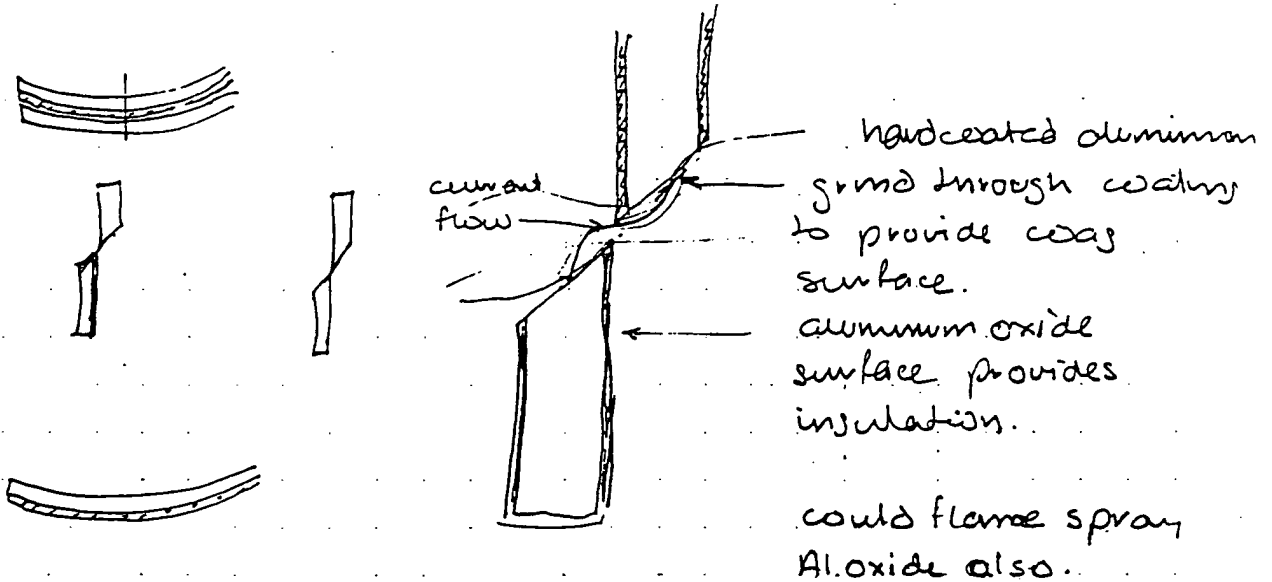 hardcoated aluminum
current
flow
grind through coating
to provide coag
surface.
aluminum oxide
surface provides
insulation.
could flame spray
Al. oxide also.